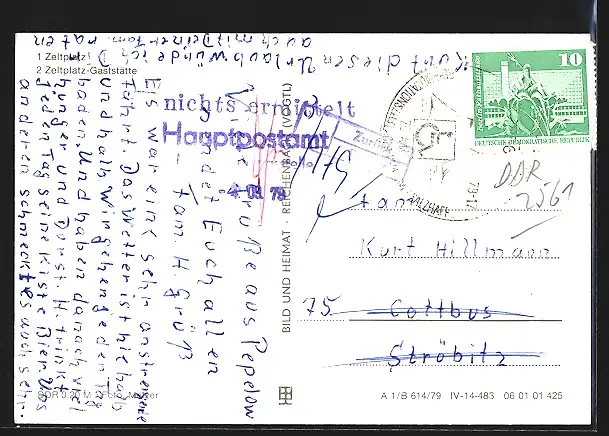 1 Zeltplatz
2 Zeltplatz-Gaststätte
Viele Grüße aus Pepelow
sendet Euch allen
Fam. H Grüß
Es war eine sehr anstrengende
Fahrt. Das Wetter ist halb
und halb. Wir gehen jeden Tag
baden. Und haben danach viel
hunger und Durst. H. trinkt
jeden Tag seine Kiste Bier. Uns
anderen schmeckt es auch sehr.
Kurt diesen Urlaub würde ich
auch mit Deiner Fam. raten
nichts ermittelt
Hauptpostamt
Zurück
BILD UND HEIMAT · REICHENBACH (VOGTL)
10
DEUTSCHE DEMOKRATISCHE REPUBLIK
DDR
2561
Fam
Kurt Hillmann
75 Cottbus
Ströbitz
DDR 0,20 M
A 1/B 614/79 IV-14-483 06 01 01 425